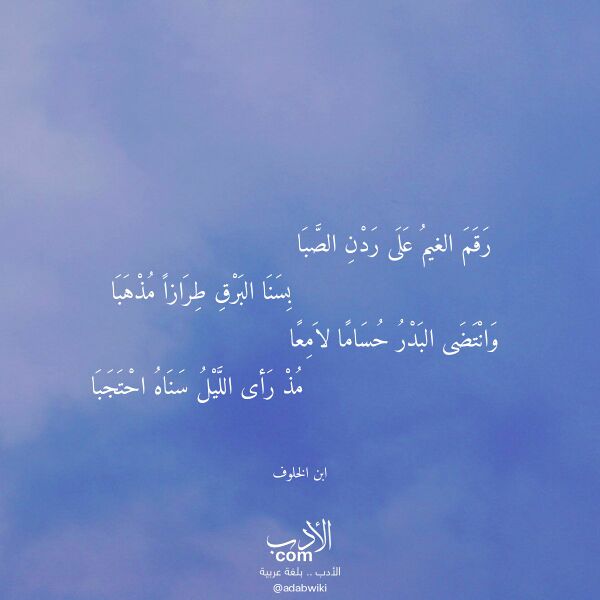 رَقَمَ الغيمُ عَلَى رَدْنِ الصَّبَا
بِسَنَا البَرْقِ طِرَازاً مُذْهَبَا
وَانْتَضَى البَدْرُ حُسَامًا لاَمِعًا
مُذْ رَأى اللَّيْلُ سَنَاهُ احْتَجَبَا
ابن الخلوف
الأدب
com
الأدب .. بلغة عربية
@adabwiki